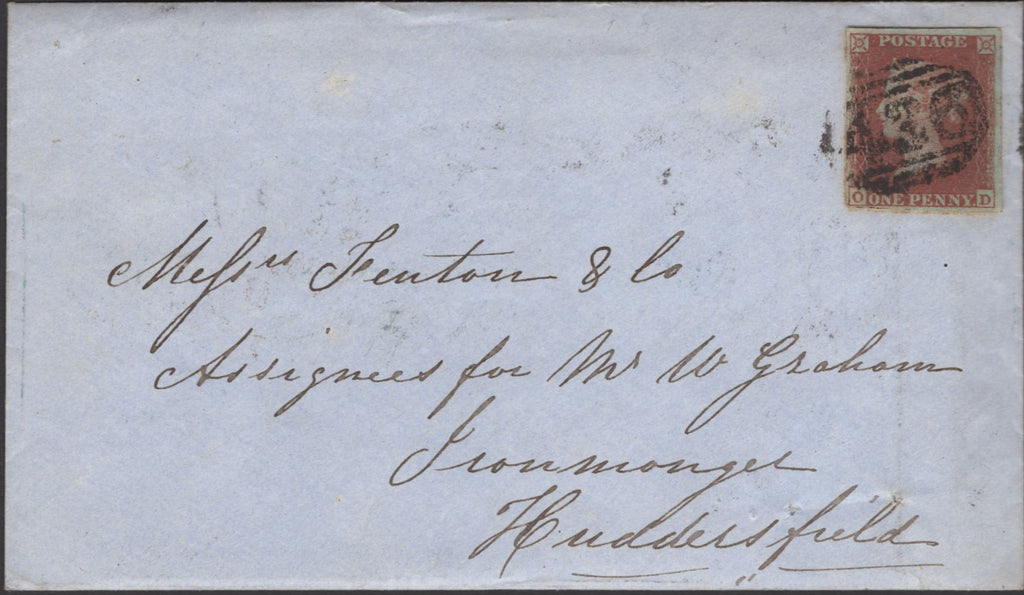 POSTAGE
O ONE PENNY D
Messrs Fenton & Co
Assignees for Mr W Graham
Ironmonger
Huddersfield